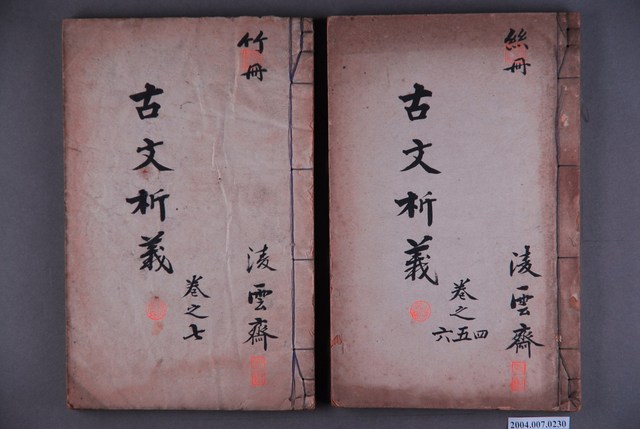 絲冊
古文析義
卷之
六五四
淩雲齋
竹冊
古文析義
卷之七
淩雲齋
2004.007.0230